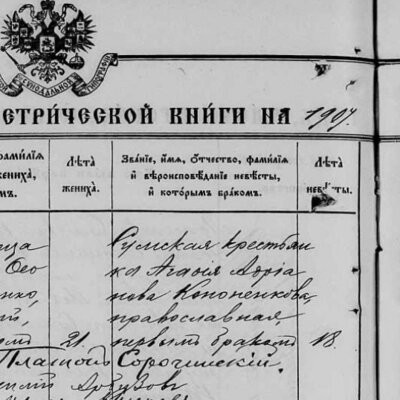 СѴНОДАЛЬНОЙ
СТРИ́ЧЕСКОЙ КНИ́ГИ НА 1907.
ФАМИ́ЛІЯ
ЖЕНИХА̀,
МЪ.
ЛѢ́ТА
ЖЕНИХА̀.
ЗВА́НІЕ, И́МЯ, О́ТЧЕСТВО, ФАМИ́ЛІЯ
И ВѢРОИСПОВѢ́ДАНІЕ НЕВѢ́СТЫ,
И КОТО́РЫМЪ БРА́КОМЪ.
ЛѢ́ТА
НЕВѢ́СТЫ.
Сумская крестьян
Ѳео ка Агаѳія Адріа
нко, нова Кононенкова,
православная,
21. первымъ бракомъ 18.
Платонъ Сорочинскій.
Арбузовъ